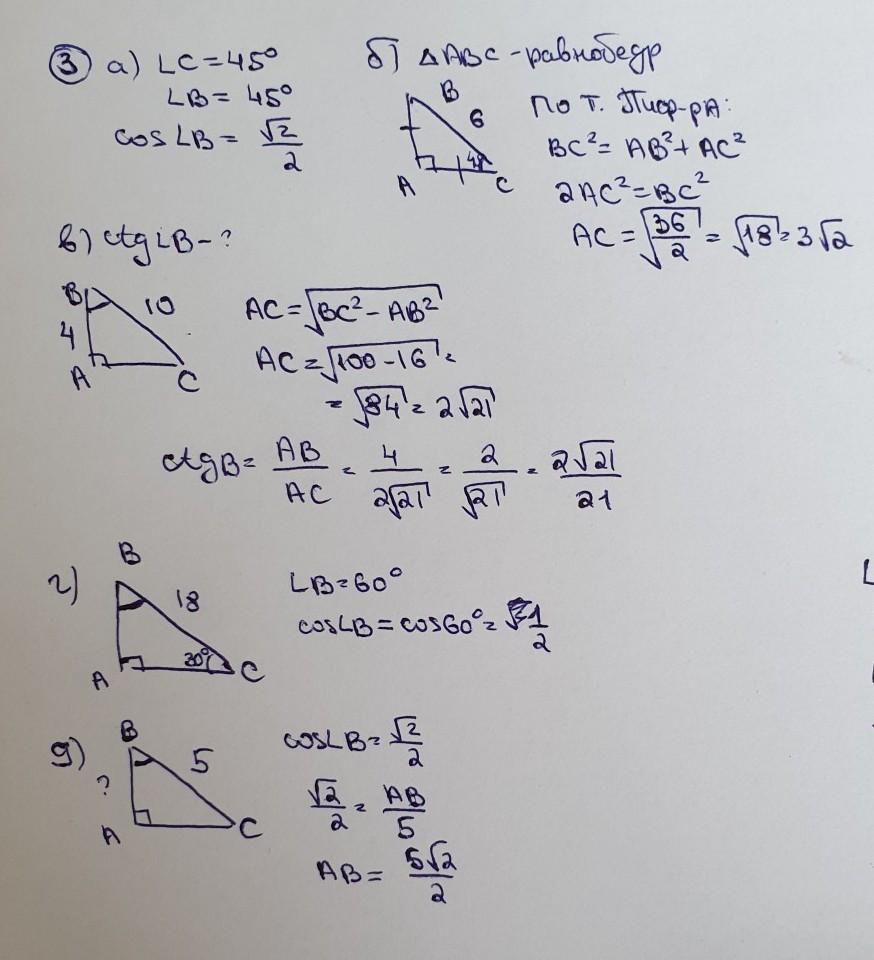 ③ а) ∠C = 45°
∠B = 45°
cos∠B = √2/2
б) △ABC - равнобедр
B
6
A
45°
C
По т. Пифагора:
BC² = AB² + AC²
2AC² = BC²
AC = √(36/2) = √18 = 3√2
в) ctg∠B - ?
B
10
4
A
C
AC = √(BC² - AB²)
AC = √(100 - 16) =
= √84 = 2√21
ctgB = AB/AC = 4/(2√21) = 2/√21 = 2√21/21
г)
B
18
A
30°
C
∠B = 60°
cos∠B = cos60° = 1/2
д)
B
5
?
A
C
cos∠B = √2/2
√2/2 = AB/5
AB = 5√2/2